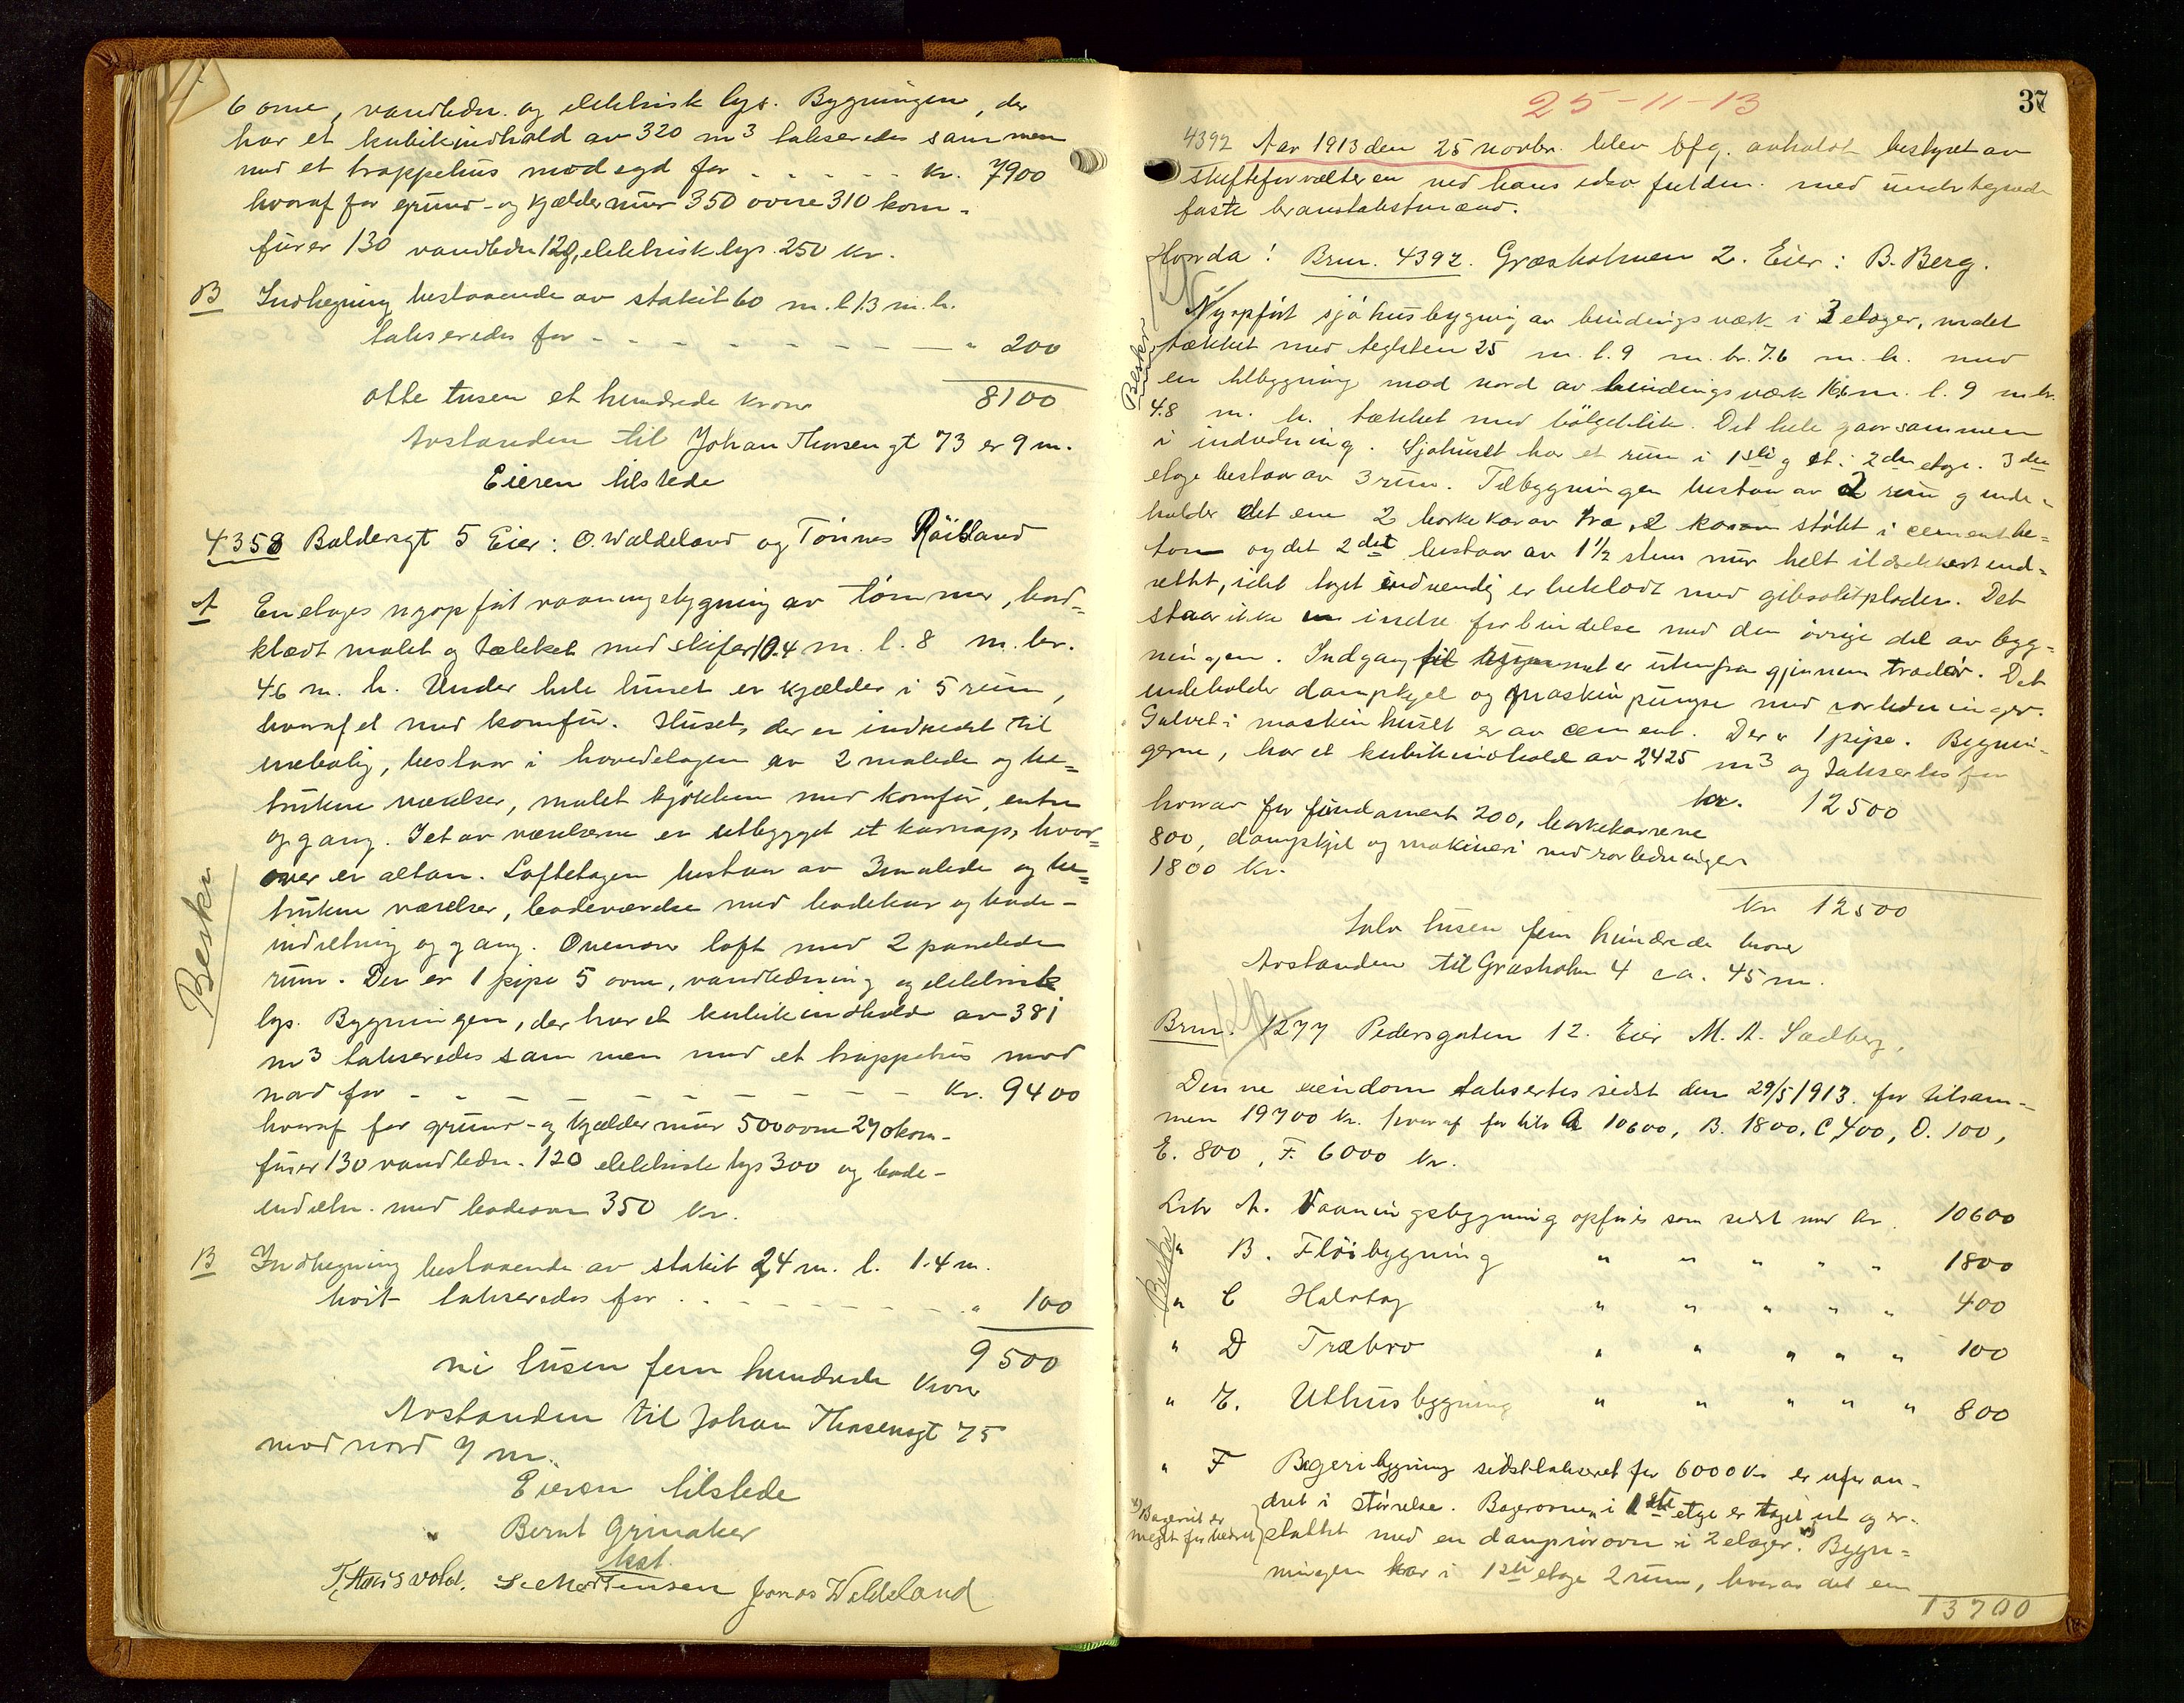 6 ovne, vandledn. og elektrisk lys. Bygningen, der
har et kubikindhold av 320 m3 takseredes sammen
med et trappehus mod syd for - - - - - kr. 7900
hvoraf for grund- og kjældermur 350 ovne 310 kom-
fürer 130 vandledn 120, elektrisk lys 250 kr.
B Indhegning bestaaende av stakit 60 m. l. 1.3 m. h.
takseredes for - - - - - - - - - " 200
8100
otte tusen et hundrede kroner
Avstanden til Johan Thorsengt 73 er 9 m.
Eieren tilstede
4358 Baldersgt 5 Eier: O. Waldeland og Tönnes
A En etages nyopført vaaningsbygning av tömmer, bord-
klædt malet og tækket med skifer 10.4 m. l. 8 m. br.
4.6 m. h. Under hele huset er kjælder i 5 rum,
hvoraf et med komfür. Huset, der er indredet til
enebolig, bestaar i hovedetagen av 2 malede og be-
trukne værelser, malet kjökken med komfür, entre
og gang. I et av værelserne er utbygget et karnap, hvor-
over er altan. Loftetagen bestaar av 3 malede og be-
trukne værelser, badeværelse med badekar og bade-
indretning og gang. Ovenover loft med 2 panelede
rum. Der er 1 pipe 5 ovne, vandledning og elektrisk
lys. Bygningen, der har et kubikindhold av 381
m3 takseredes sammen med et trappehus mod
nord for - - - - - - - - - - Kr. 9400
hvoraf for grund- og kjældermur 500 ovne 270 kom-
fürer 130 vandledn. 120 elektriske lys 300 og bade-
indretn. med badeovn 350 Kr.
Beskr
B Indhegning bestaaende av stakit 24 m. l. 1.4 m.
høit takseredes for - - - - - - - - - " 100
9500
ni tusen fem hundrede kroner
Avstanden til Johan Thorsensgt 75
mod nord 7 m.
Eieren tilstede
" Bernt Grinaker
kst.
S. Mortensen Jonas Waldeland
25-11-13
37
4392 Aar 1913 den 25 novbr. blev bfg. avholdt bestyret av
skifteforvalteren ved hans edsv fuldm. med undertegnede
faste branntakstmænd.
Hvorda! Brnr. 4392. Græsholmen 2. Eier: B. Berg.
Beskr
Nyopført sjöhusbygning av bindingsværk i 3 etager, malet
tækket med teglsten 25 m. l. 9 m. br. 7.6 m. h. med
en tilbygning mod nord av bindingsværk 16,6 m. l. 9 m. br.
4.8 m. h. tækket med bölgeblik. Det hele gaar sammen
i indredning. Sjöhuset har et rum i 1ste og et i 2den etage. 3die
etage bestaar av 3 rum. Tilbygningen bestaar av 2 rum og inde-
holder det ene 2 barkekar av træ, 2 kar støbt i cementbe-
ton og det 2det bestaar av 1 1/2 stens mur helt ildsikkert ind-
rettet, idet taget indvendig er beklædt med gibsolitplader. Det
staar ikke i indre forbindelse med den övrige del av byg-
ningen. Indgang til rummet er utenfra gjennem trædör. Det
indeholder dampkjel og maskinpumpe med rørledninger.
Gulvet i maskinhuset er av cement. Der er 1 pipe. Bygnin-
gerne, har et kubikindhold av 2425 m3 og takseres for
kr. 12500
hvorav for fundament 200, barkekarrene
800, dampkjel og maskineri med rørledninger
1800 kr.
Kr 12500
Tolv tusen fem hundrede kroner
Avstanden til Græsholm 4 ca. 45 m.
Brnr. 1277 Pedersgaten 12. Eier M. A. Sædberg.
Denne eiendom takseres sidst den 29/5 1913. for tilsam-
men 19700 kr. hvoraf for litr A 10600, B. 1800, C 400, D. 100,
E. 800, F. 6000 Kr.
Litr A. Vaaningsbygning opføres som sidst med Kr. 10600
Beskr
" B. Flöibygning " " " " " 1800
" C Halvtag " " " " " 400
" D Træbro " " " " " 100
" E. Uthusbygning " " " " " 800
" F Bageribygning sidst takseret for 6000 Kr er uforan-
dret i størrelse. Bagerovnen i 1ste etage er taget ut og er-
stattet med en damprørovn i 2 etager. x) Bygn-
x) Bageriet er
meget forbedret
ningen har i 1ste etage 2 rum, hvorav det ene
13700